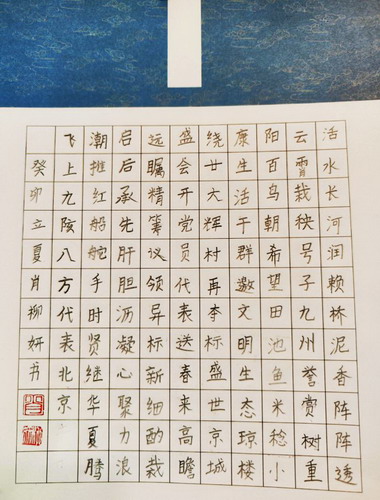 活水长河润赖桥泥香阵阵透
云霄栽秧号子九州誉赏树重
阳百鸟朝希望田池鱼米稔小
康生活干群邀文明生态琼楼
绕廿大辉村再李标盛世京城
盛会开党员代表送春来高瞻
远瞩精筹议领异标新细酌裁
启后承先肝胆沥凝心聚力浪
潮推红船舵手时贤继华夏腾
飞上九陔八方代表北京
癸卯立夏肖柳妍书